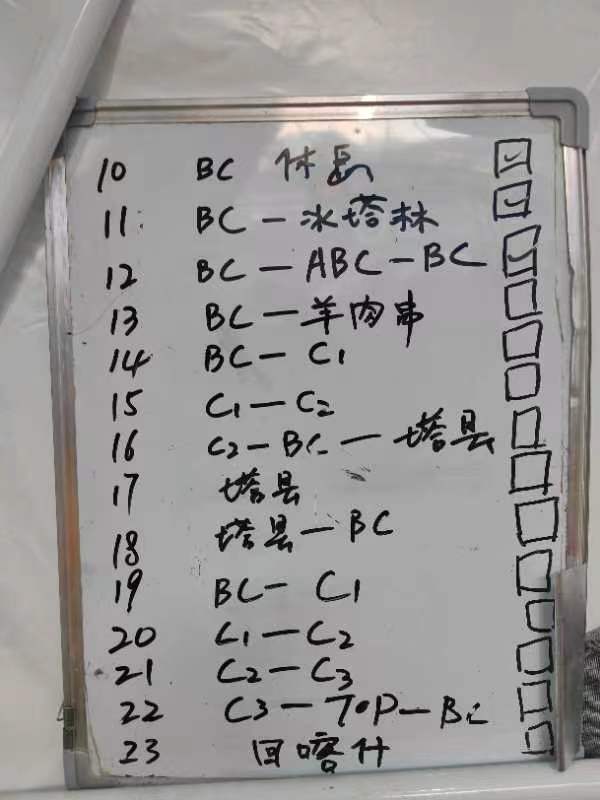 10 BC 休息
11 BC—冰塔林
12 BC—ABC—BC
13 BC—羊肉串
14 BC—C1
15 C1—C2
16 C2—BC—塔县
17 塔县
18 塔县—BC
19 BC—C1
20 C1—C2
21 C2—C3
22 C3—TOP—BC
23 回喀什